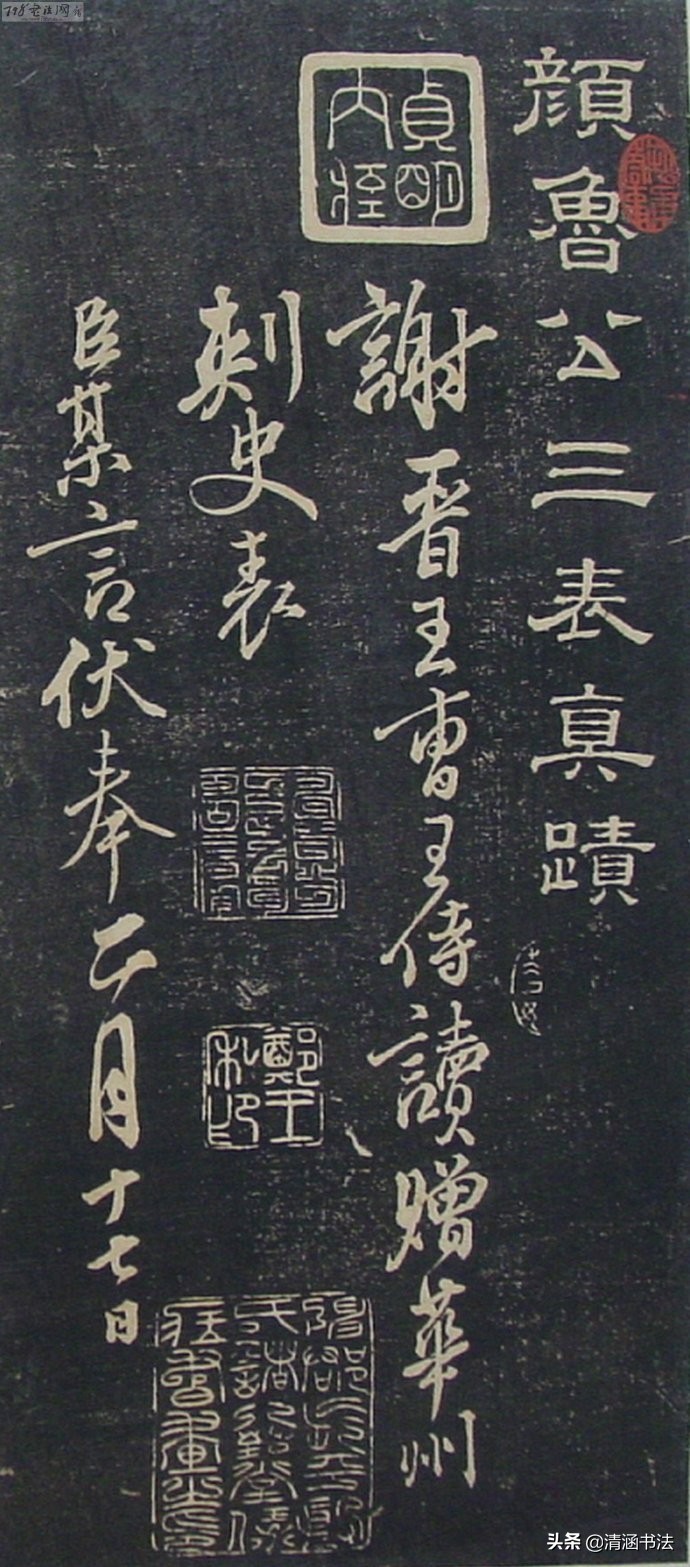 顔魯公三表真蹟
謝晉王曹王侍讀贈華州
刺史表
臣某言伏奉二月十七日
貞明
內姪
鄭王
私印
头条 @清涵书法